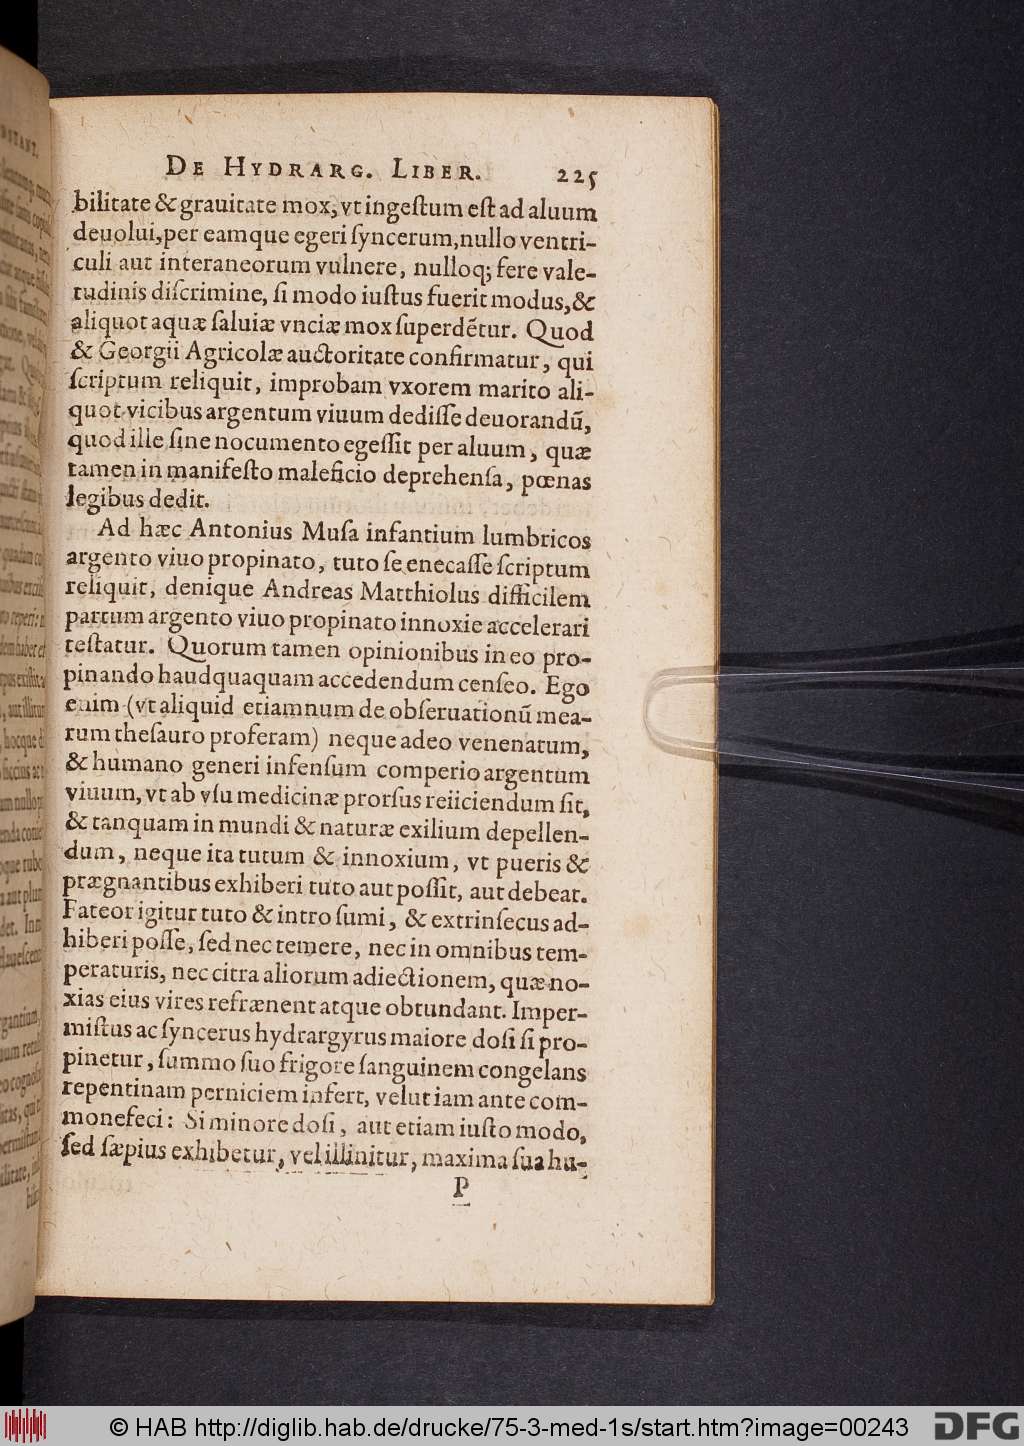 DE HYDRARG. LIBER. 225
bilitate & grauitate mox, vt ingeſtum eſt ad aluum
deuolui, per eamque egeri ſyncerum, nullo ventri-
culi aut interaneorum vulnere, nulloq; fere vale-
tudinis diſcrimine, ſi modo iuſtus fuerit modus, &
aliquot aquæ ſaluiæ vnciæ mox ſuperdẽtur. Quod
& Georgii Agricolæ auctoritate confirmatur, qui
ſcriptum reliquit, improbam vxorem marito ali-
quot vicibus argentum viuum dediſſe deuorandũ,
quod ille ſine nocumento egeſſit per aluum, quæ
tamen in manifeſto maleficio deprehenſa, pœnas
legibus dedit.
Ad hæc Antonius Muſa infantium lumbricos
argento viuo propinato, tuto ſe enecaſſe ſcriptum
reliquit, denique Andreas Matthiolus difficilem
partum argento viuo propinato innoxie accelerari
teſtatur. Quorum tamen opinionibus in eo pro-
pinando haudquaquam accedendum cenſeo. Ego
enim (vt aliquid etiamnum de obſeruationũ mea-
rum theſauro proferam) neque adeo venenatum,
& humano generi infenſum comperio argentum
viuum, vt ab vſu medicinæ prorſus reiiciendum ſit,
& tanquam in mundi & naturæ exilium depellen-
dum, neque ita tutum & innoxium, vt pueris &
prægnantibus exhiberi tuto aut poſſit, aut debeat.
Fateor igitur tuto & intro ſumi, & extrinſecus ad-
hiberi poſſe, ſed nec temere, nec in omnibus tem-
peraturis, nec citra aliorum adiectionem, quæ no-
xias eius vires refrænent atque obtundant. Imper-
miſtus ac ſyncerus hydrargyrus maiore doſi ſi pro-
pinetur, ſummo ſuo frigore ſanguinem congelans
repentinam perniciem infert, velut iam ante com-
monefeci: Si minore doſi, aut etiam iuſto modo,
ſed ſæpius exhibetur, vel illinitur, maxima ſua hu-
P
© HAB http://diglib.hab.de/drucke/75-3-med-1s/start.htm?image=00243
DFG